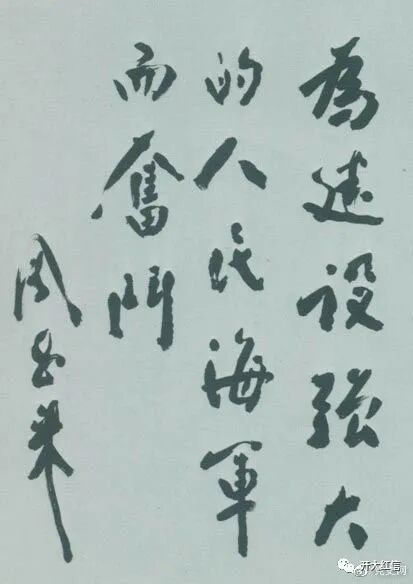 為建设强大
的人民海軍
而奮鬥
周恩来
开大红信